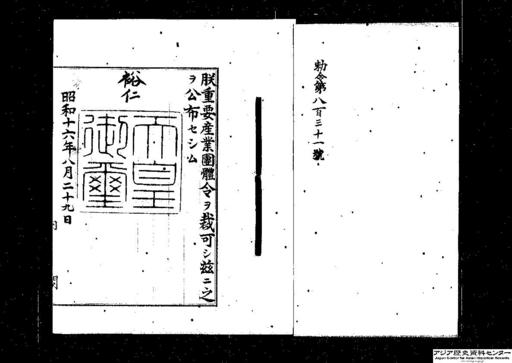 勅令第八百三十一號
朕重要産業團體令ヲ裁可シ茲ニ之
ヲ公布セシム
裕仁
天皇
御璽
昭和十六年八月二十九日
内閣
アジア歴史資料センター
Japan Center for Asian Historical Records